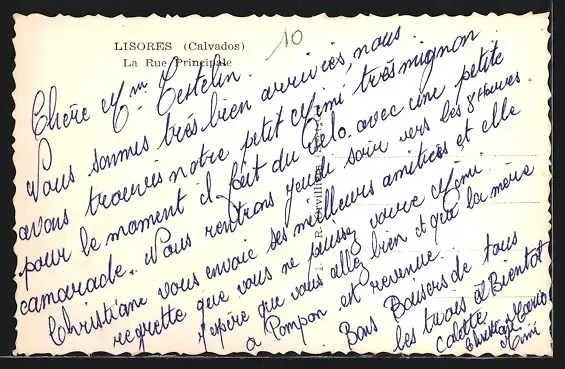 LISORES (Calvados)
La Rue Principale
10
Chère Mme Testelin.
Nous sommes très bien arrivées, nous
avons trouvés notre petit Mimi très mignon
pour le moment il fait du vélo avec une petite
camarade. Nous rentrons jeudi soir vers les 8 Heures
Christiane vous envoie ses meilleurs amitiés et elle
regrette que vous ne puissez Mimi.
J'espère que vous allez bien et que la mère
a Pompon et revenue.
Bons Baisers de tous
les trois à Bientôt
Colette
Christiane
Mimi